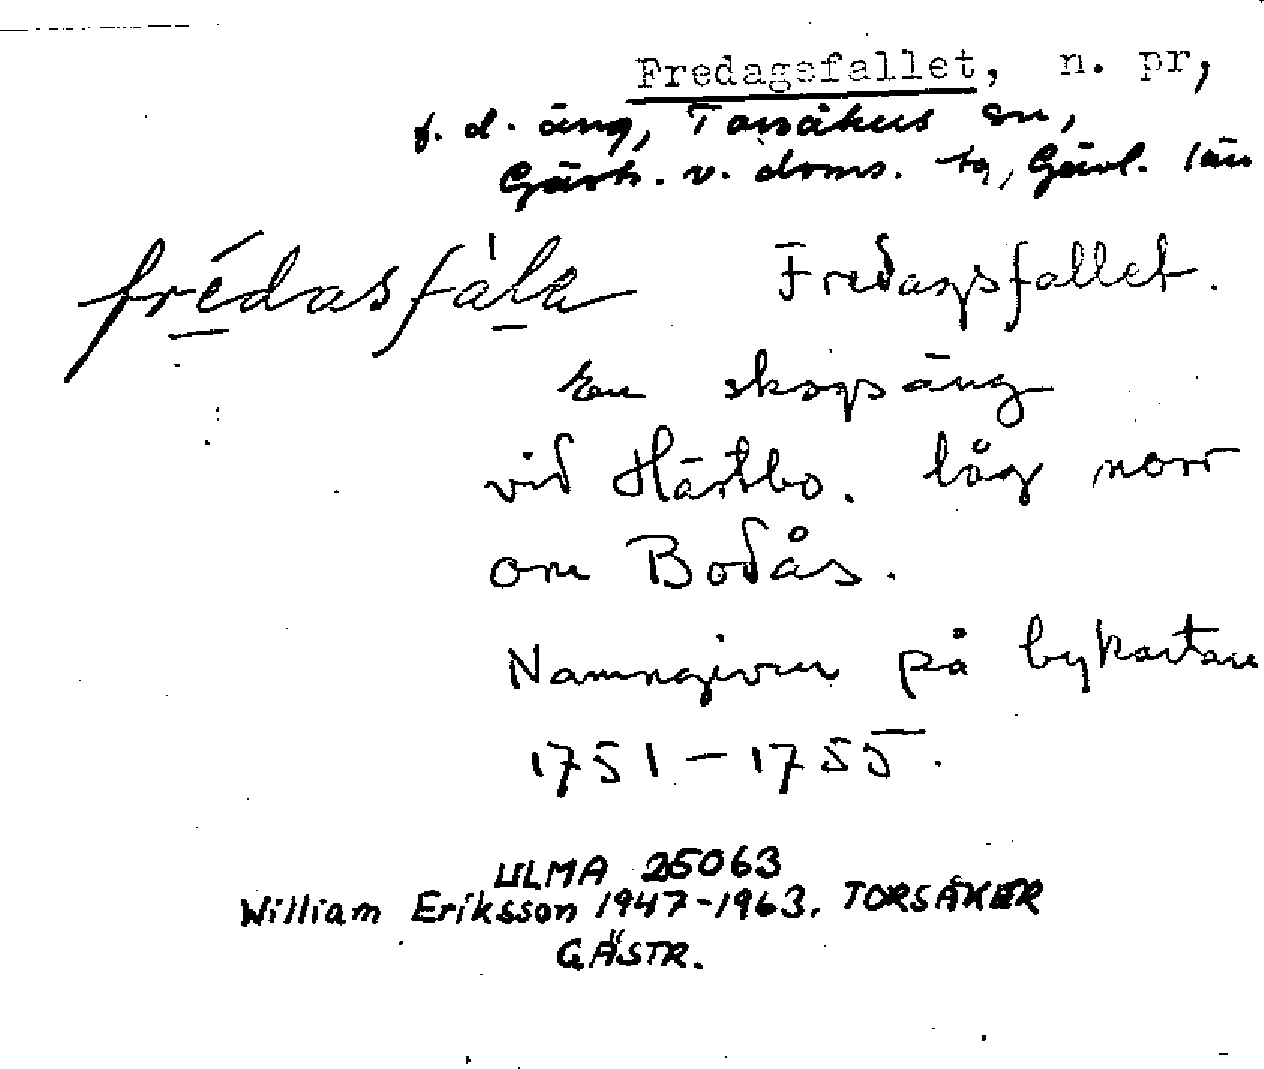 Fredagsfallet, n. pr,
f. d. äng, Torsåkers sn,
Gästr. v. doms. tg, Gävl. län
frédasfálε Fredagsfallet.
En skogsäng
vid Hästbo. låg norr
om Bodås.
Namngiven på bykartan
1751-1755.
ULMA 25063
William Eriksson 1947-1963. TORSÅKER
GÄSTR.